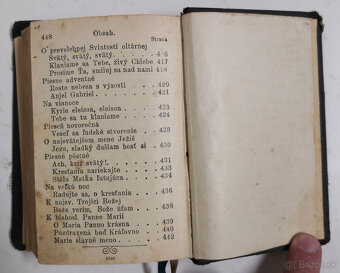 448 Obsah.
Strana
O prevelebnej Sviatosti oltárnej
Svätý, svätý, svätý . . . 416
Klaniame sa Tebe, živý Chlebe 417
Prosíme Ťa, smiluj sa nad nami 418
Piesne adventné
Roste nebesa s výsosti . . . 420
Anjel Gabriel . . . 421
Na vianoce
Kyrie eleison, eleison . . . 423
Tebe sa tu klaniame . . . 424
Pieseň novoročná
Vesel sa ľudské stvorenie . . 428
O najsvätejšom mene Ježiš
Jezu, sladký dušiam hosť si . . 430
Piesne pôstné
Ach, kríž svätý! . . . 431
Kresťania nariekajte . . . 433
Stála Matka ľutujúca . . . 434
Na veľkú noc
Radujte sa, o kresťania . . . 436
K najsv. Trojici Božej
Bože verím, Bože úfam . . . 438
K blahosl. Panne Marii
O Maria Panno krásna . . . 439
Pozdravená buď Kráľovno . . 440
Marie slávné meno . . . 442
bazos.sk